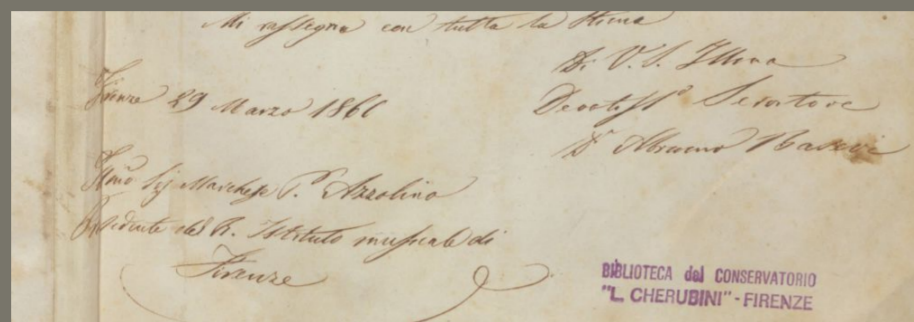 Mi rassegno con tutta la stima
Di V. S. Illma
Firenze 29 Marzo 1861
Devotiss.º Servitore
Dr Abramo Basevi
Illmo Sig Marchese P. Azzolino
Presidente del R. Istituto musicale di
Firenze
BIBLIOTECA del CONSERVATORIO
"L. CHERUBINI" - FIRENZE